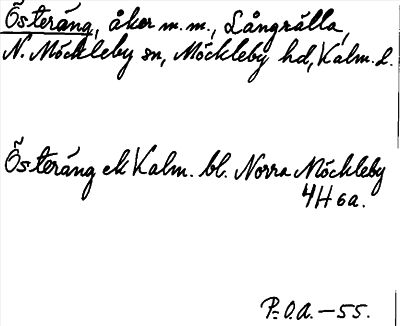 Österäng, åker m.m., Långrälla,
N. Möckleby sn, Möckleby hd, Kalm. l.
Österäng ek Kalm. bl. Norra Möckleby
4H 6a.
P:O.A. – 55.